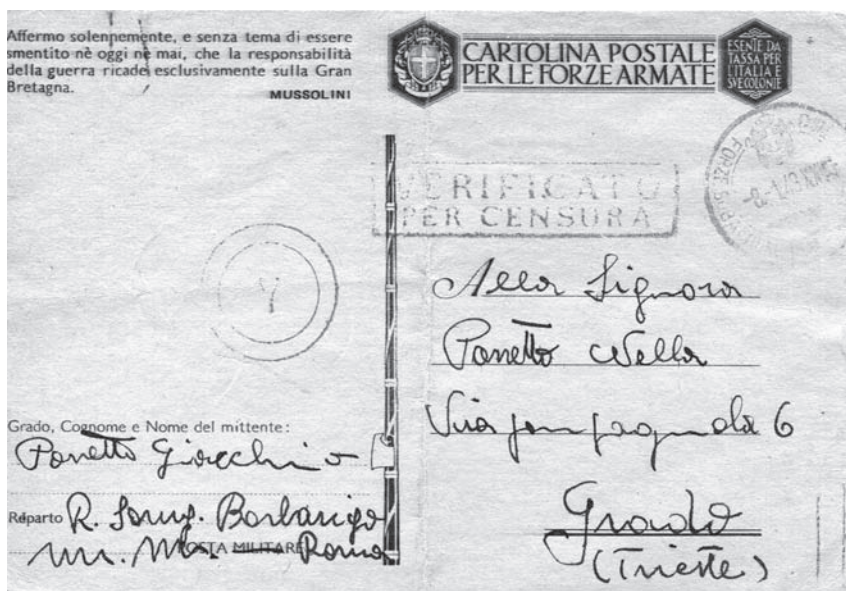 Affermo solennemente, e senza tema di essere
smentito nè oggi nè mai, che la responsabilità
della guerra ricade esclusivamente sulla Gran
Bretagna.
MUSSOLINI
CARTOLINA POSTALE
PER LE FORZE ARMATE
ESENTE DA
TASSA PER
L'ITALIA E
SVE COLONIE
VERIFICATO
PER CENSURA
Alla Signora
Panetto Nella
Via 6
Grado
(Trieste)
Grado, Cognome e Nome del mittente:
Panetto Giocchino
Reparto R. Somg. Barbarigo
POSTA MILITARE Roma